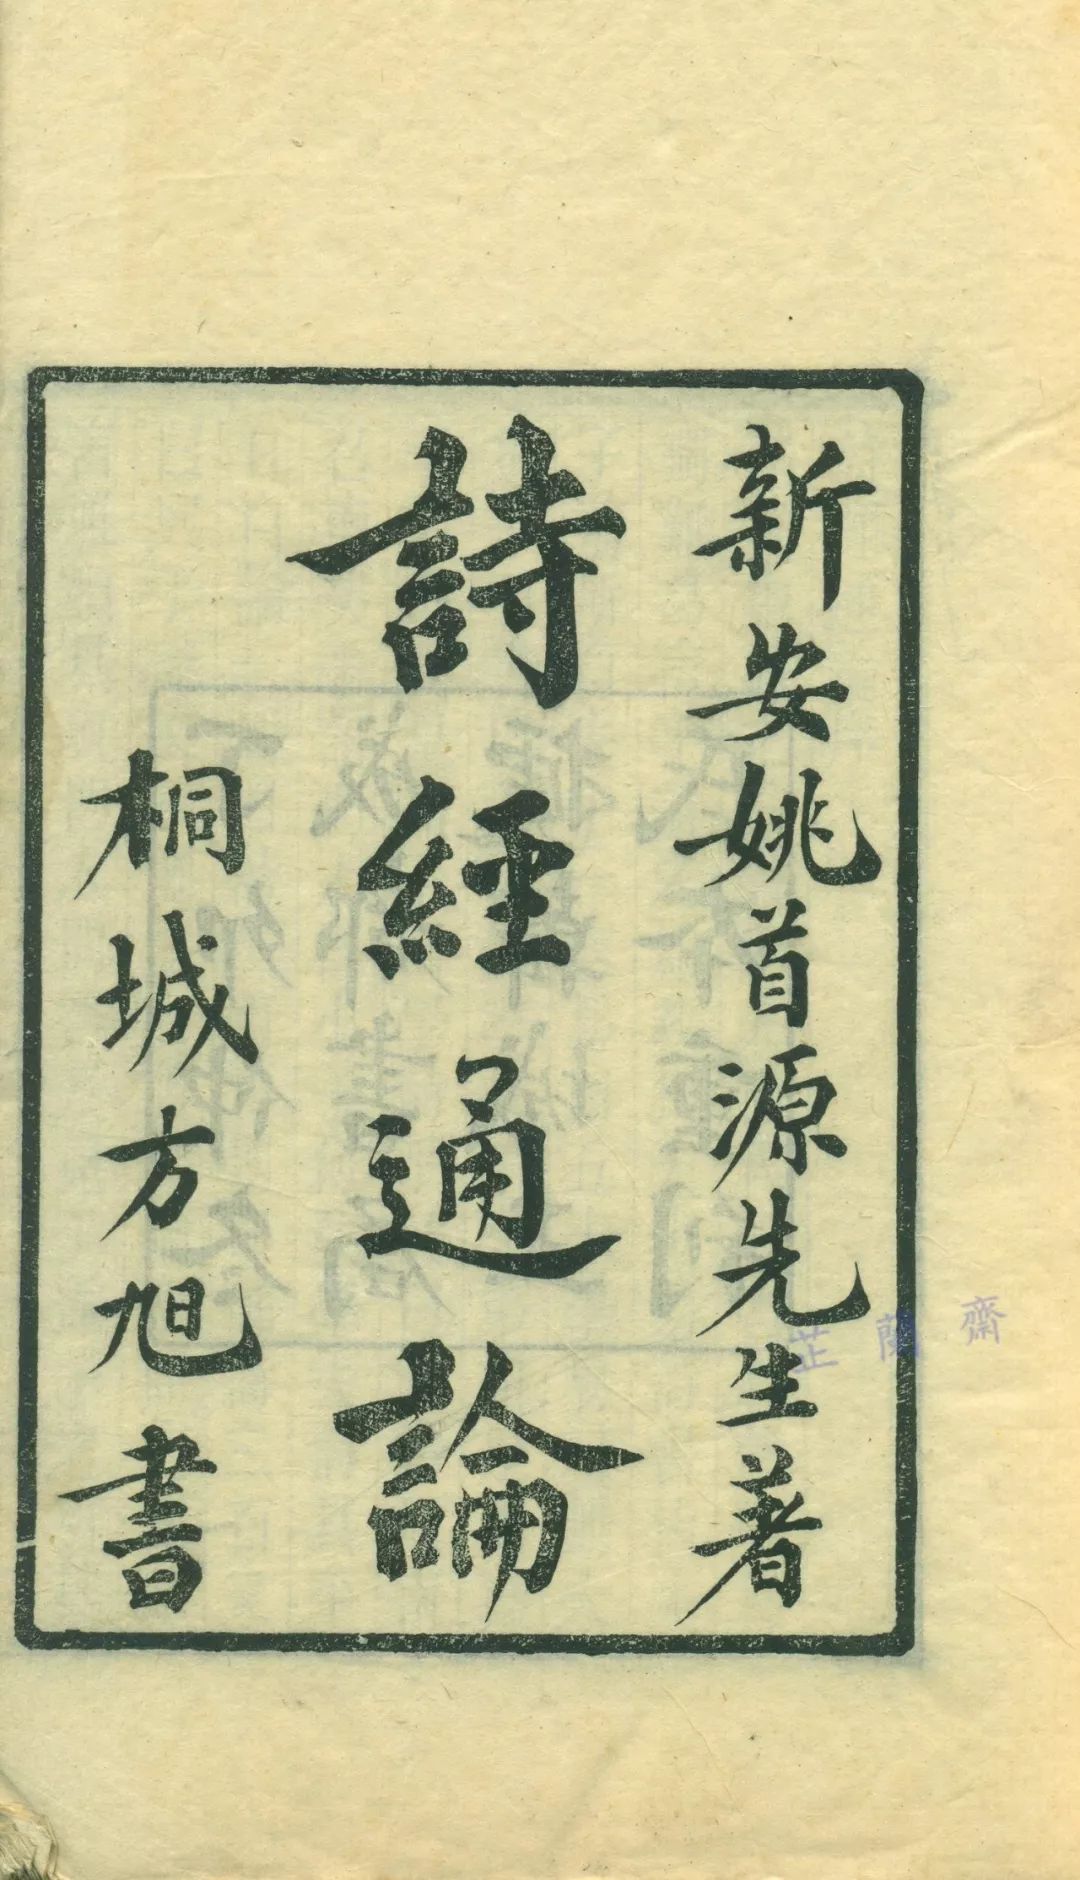 新安姚首源先生著
詩經通論
桐城方旭書
芷蘭齋